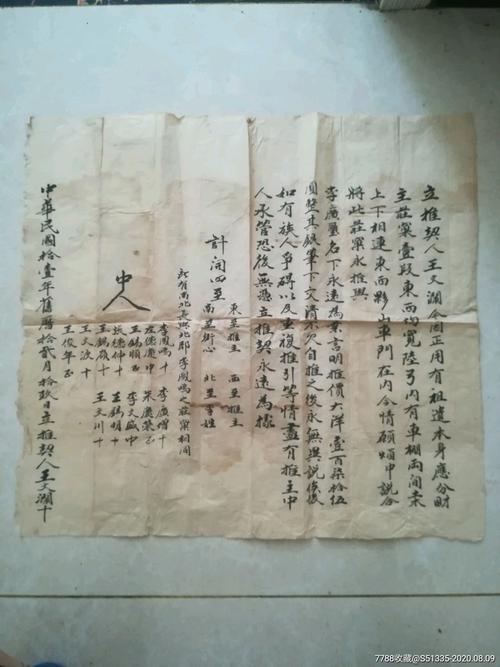 立推契人王文瀾今因正用有祖遺本身應分財
主莊窠壹段東西均寬陸弓內有車棚兩間桼
上下相連東面夥山車門在內今情願煩中說合
將此莊窠永推與
李廣置名下永遠為業言明推價大洋壹百柒拾伍
圓整其錢筆下交清不欠自推之後永無異說倘後
如有族人爭碍以及重復推引等情盡有推主中
人承管恐後無憑立推契永遠為據
計開四至
東至推主 西至推主
南至街心 北至李姓
所有南北長與北鄰李鳳鳴之莊窠相同
中人
李鳳鳴十 李廣增十
左德慶中 朱慶榮正
王錫順正 李文盛中
張德仲十 王錫明十
王錫嶺十 王文川十
王文波十
王俊年正
中華民國拾壹年舊曆拾貳月拾玖日立推契人王文瀾十
7788收藏@S51335-2020.08.09